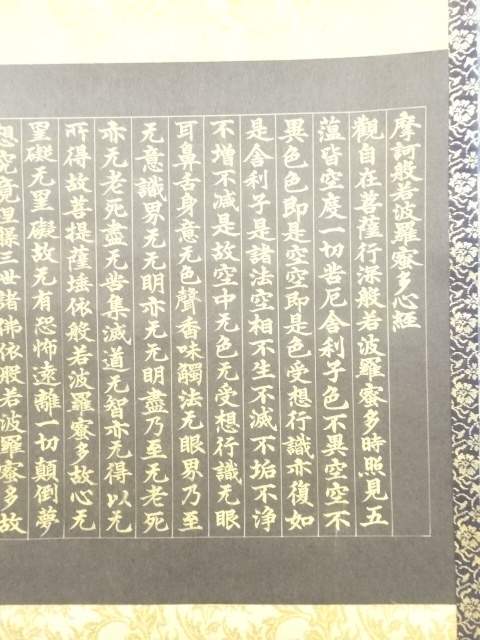 摩訶般若波羅蜜多心経
觀自在菩薩行深般若波羅蜜多時照見五
蕰皆空度一切苦厄舎利子色不異空空不
異色色即是空空即是色受想行識亦復如
是舎利子是諸法空相不生不滅不垢不浄
不增不減是故空中无色无受想行識无眼
耳鼻舌身意无色聲香味觸法无眼界乃至
无意識界无无明亦无无明盡乃至无老死
亦无老死盡无苦集滅道无智亦无得以无
所得故菩提薩埵依般若波羅蜜多故心无
罣礙无罣礙故无有恐怖遠離一切顛倒夢
想究竟涅槃三世諸佛依般若波羅蜜多故